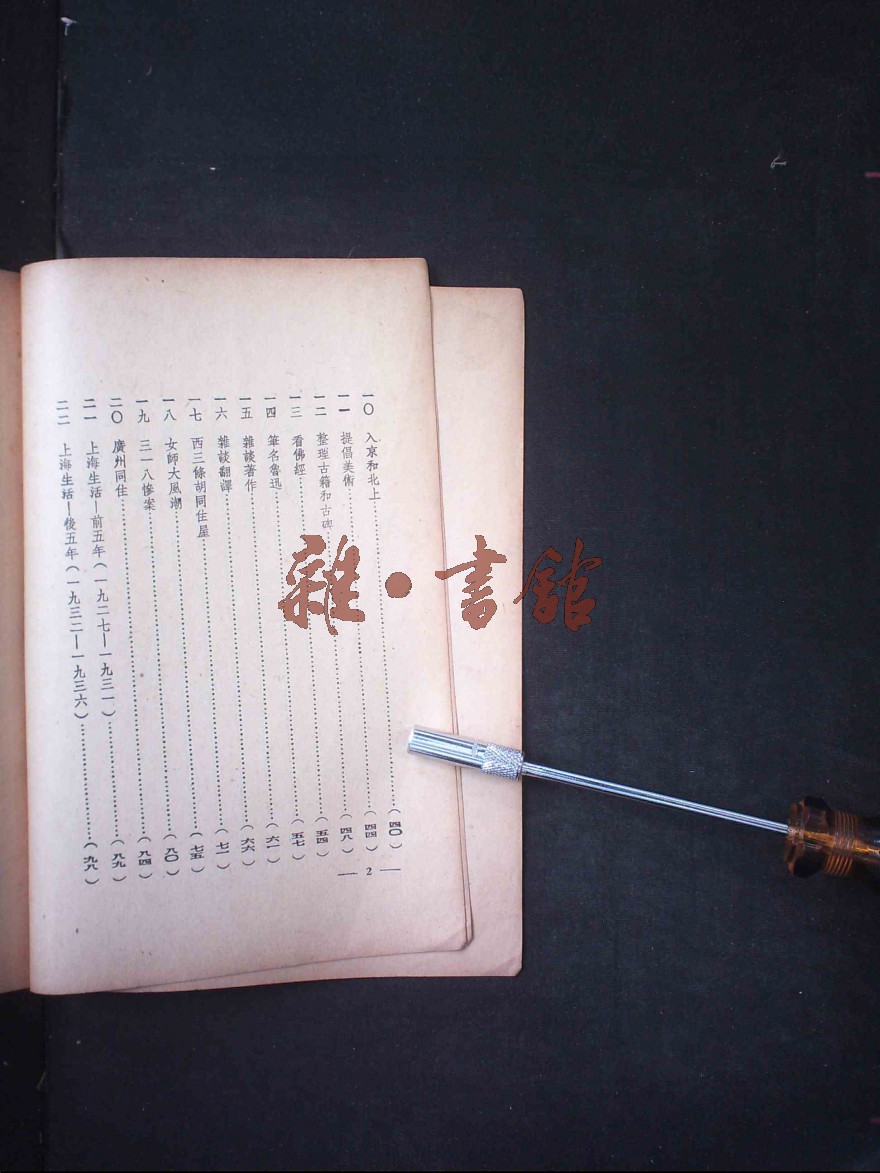 一〇 入京和北上……(四〇)
一一 提倡美術……(四四)
一二 整理古籍和古碑……(四八)
一三 看佛經……(五四)
一四 筆名魯迅……(五七)
一五 雜談著作……(六一)
一六 雜談翻譯……(六六)
一七 西三條胡同住屋……(七一)
一八 女師大風潮……(七五)
一九 三一八慘案……(八〇)
二〇 廣州同住……(八四)
二一 上海生活—前五年(一九二七—一九三一)……(八九)
二二 上海生活—後五年(一九三二—一九三六)……(九八)
— 2 —
雜•書館